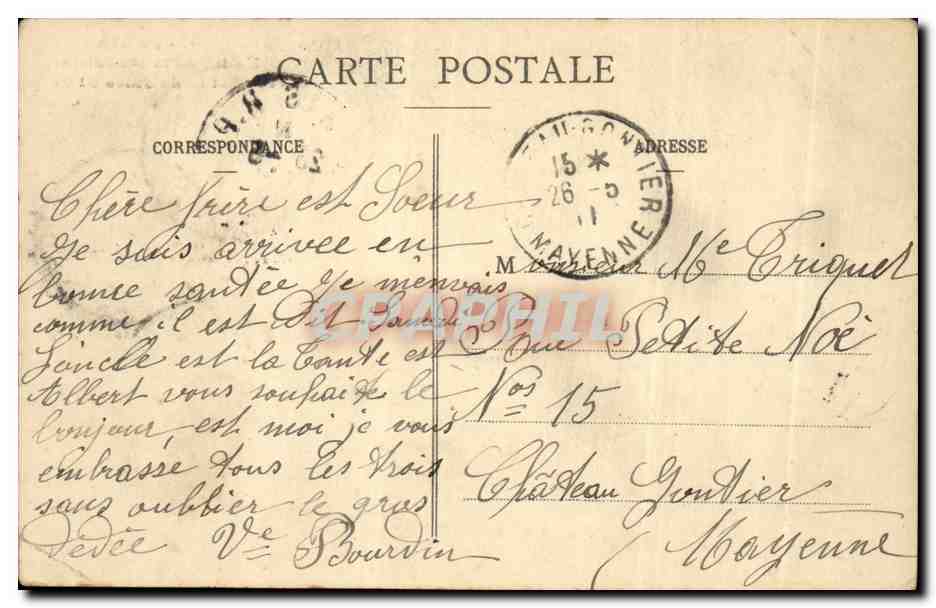 CARTE POSTALE
CORRESPONDANCE
ADRESSE
GONTIER
15 *
26 - 5
11
MAYENNE
Chère frère est Soeur
Je suis arrivee en
bonne santée Je m'envais
comme il est Dit Samedi
L'oncle est la Tante est
Albert vous souhaite le
bonjour, est moi je vous
embrasse tous les trois
sans oublier le gros
Dédée Ve Bourdin
Monsieur Me Triquet
Rue Petite Noé
Nos 15
Château Gontier
(Mayenne
CPAPHIL